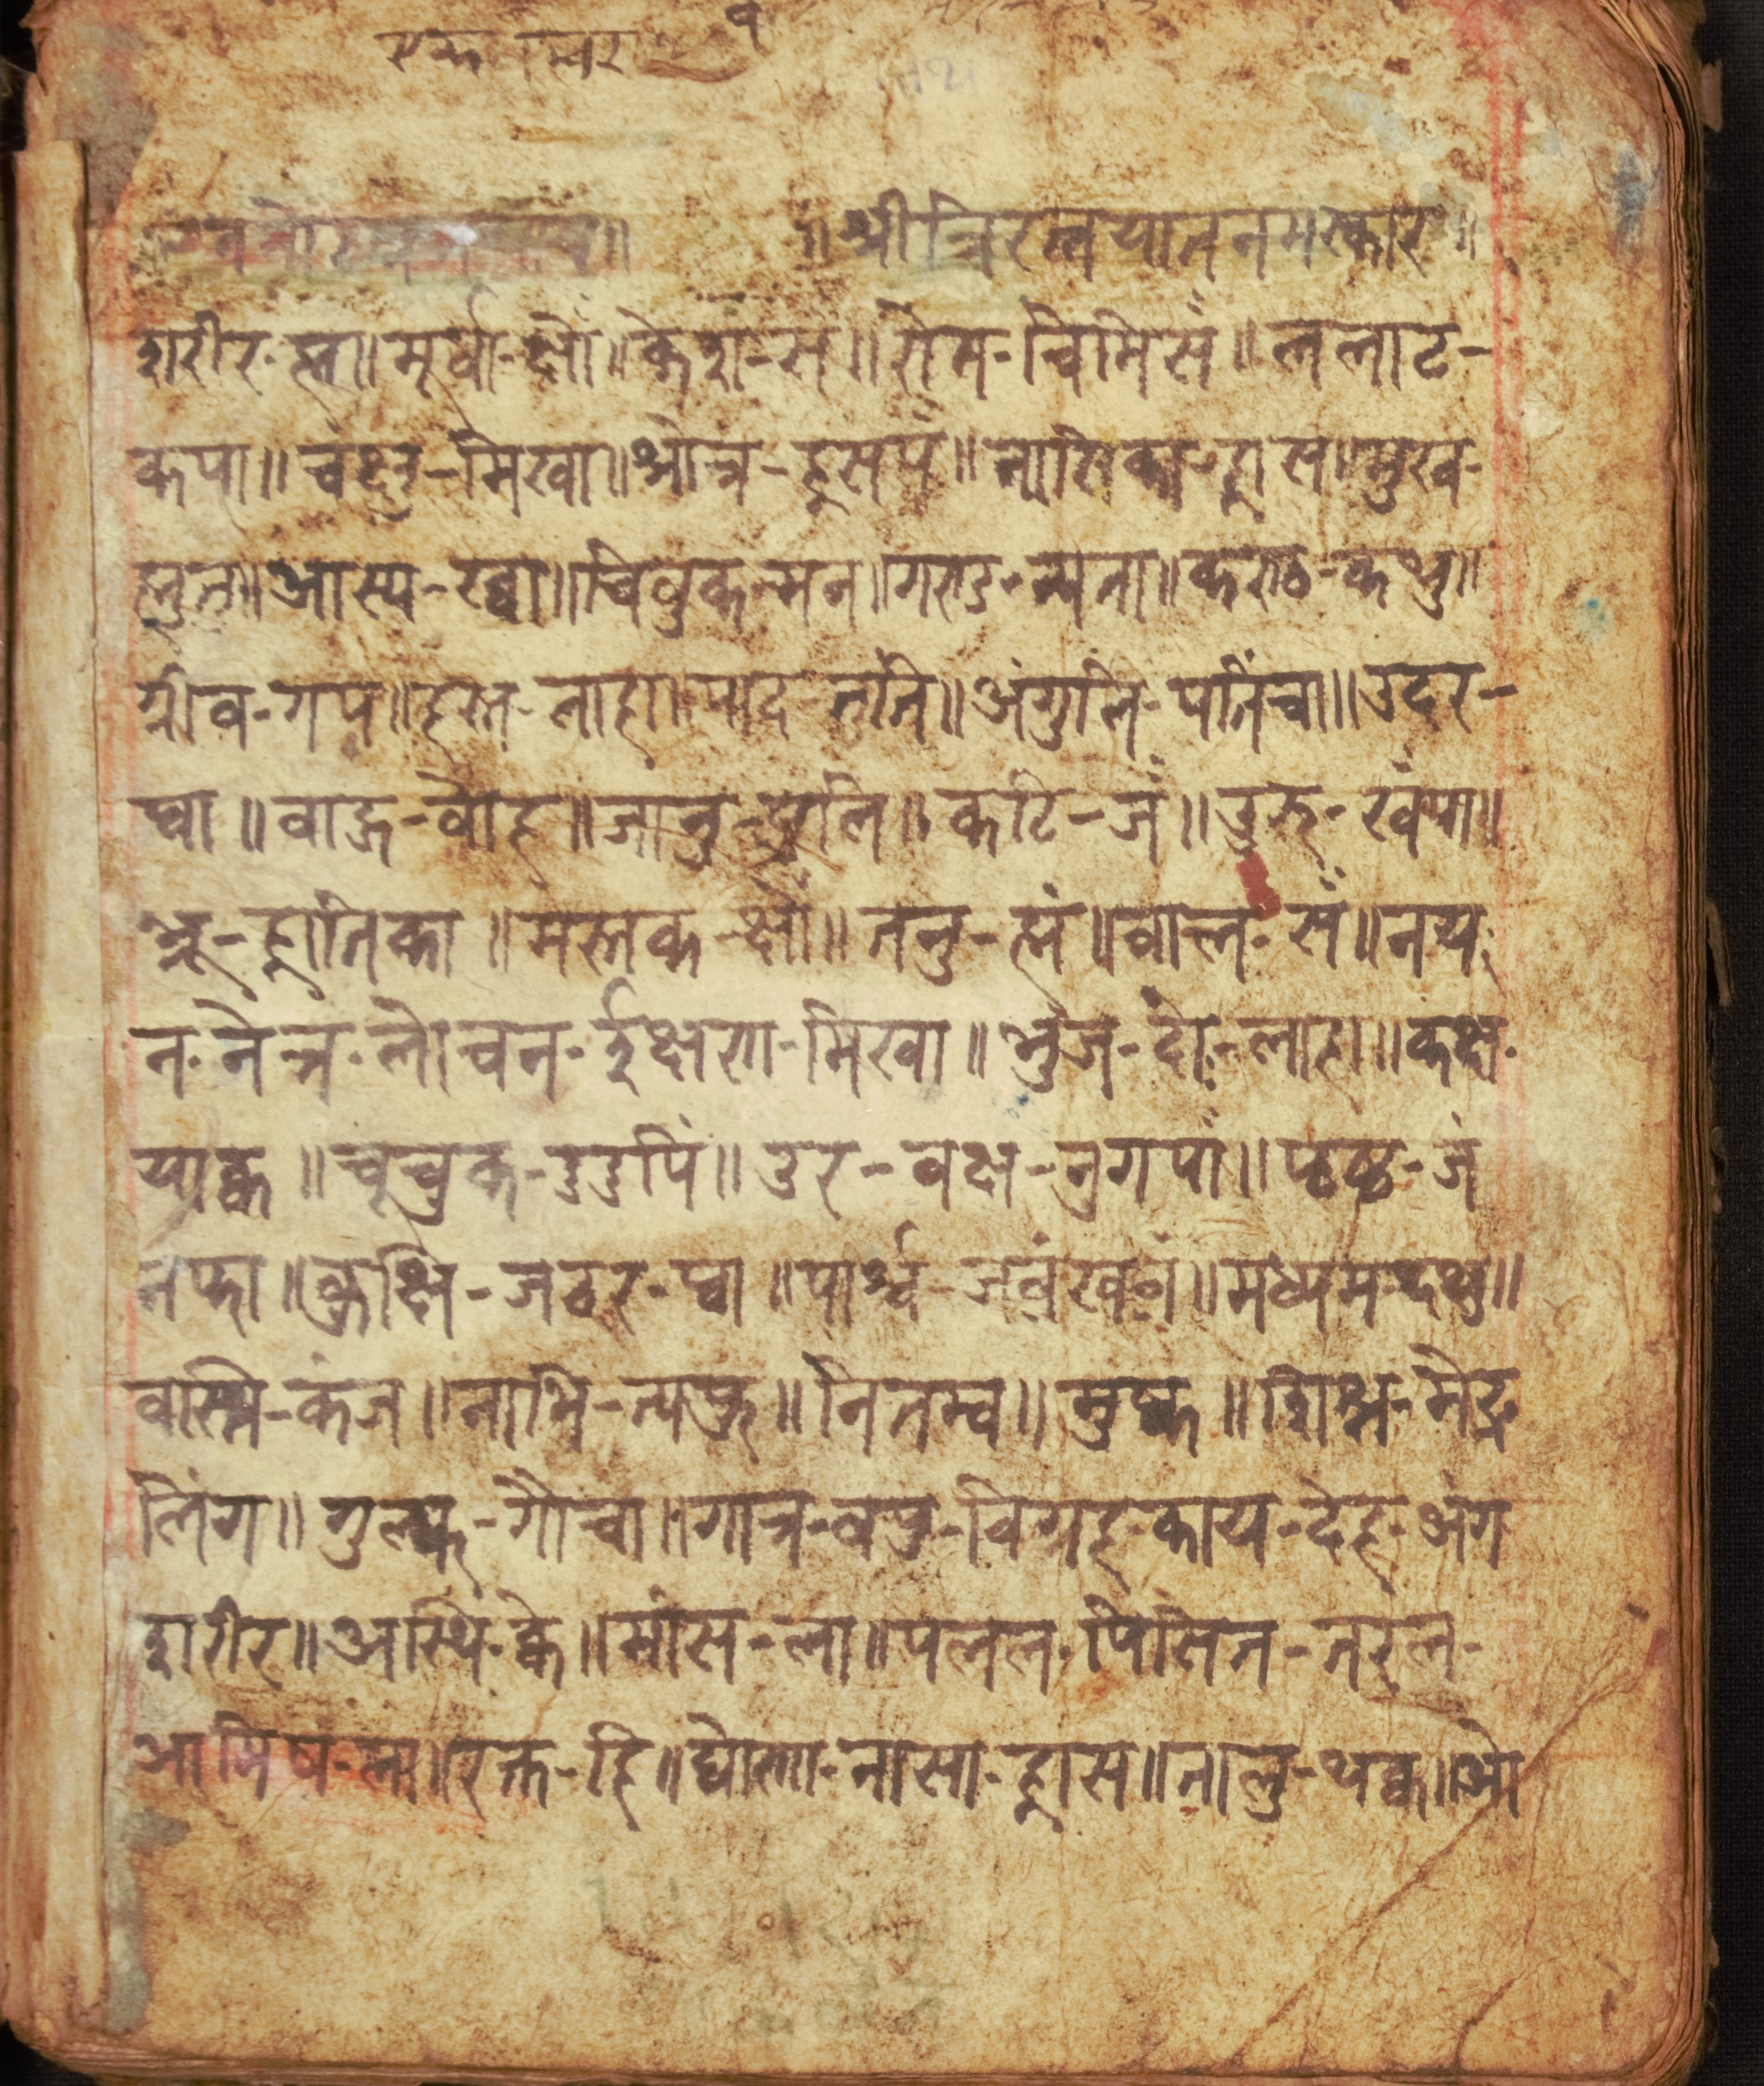 ॥ श्रीत्रिरत्नयात नमस्कार ॥
शरीर-ह्म॥ मूर्धा-क्षों॥ केश-सं॥ रोम-चिमिसं॥ ललाट-
कपा॥ चक्षु-मिखा॥ श्रोत्र-ह्नसपं॥ नासिका-ह्नास॥ मुख-
ह्मुत॥ आस्य-ख्वा॥ चिवुक-मन॥ गण्ड-न्यता॥ कण्ठ-कथु॥
ग्रीव-गप॥ हस्त-लाहा॥ पाद-तुति॥ अंगुलि-पतिंचा॥ उदर-
प्वा॥ वाहु-वोह॥ जानु-पुलि॥ कटि-जं॥ उरु-खंपा॥
भ्रू-ह्नातिका॥ मस्तक-क्षों॥ तनु-ह्मं॥ वाल-सं॥ नय
न-नेत्र-लोचन-ईक्षण-मिखा॥ भुज-दो-लाहा॥ कक्ष-
याक्व॥ चूचुक-दुदुपिं॥ उर-वक्ष-नुगपां॥ पृष्ठ-जं
नफा॥ कुक्षि-जठर-प्वा॥ पार्श्व-जवंखवं॥ मध्यम-दथु॥
वास्ति-कंज॥ नाभि-त्यफु॥ नितम्व॥ मुष्क॥ शिश्न-मेढ्र
लिंग॥ गुल्फ-गौचा॥ गात्र-वपु-विग्रह-काय-देह-अंग
शरीर॥ अस्थि-क्वे॥ मांस-ला॥ पलल-पिसित-तरल-
आमिष-ला॥ रक्त-हि॥ घोण-नासा-ह्नास॥ तालु-थक्व॥ ओ